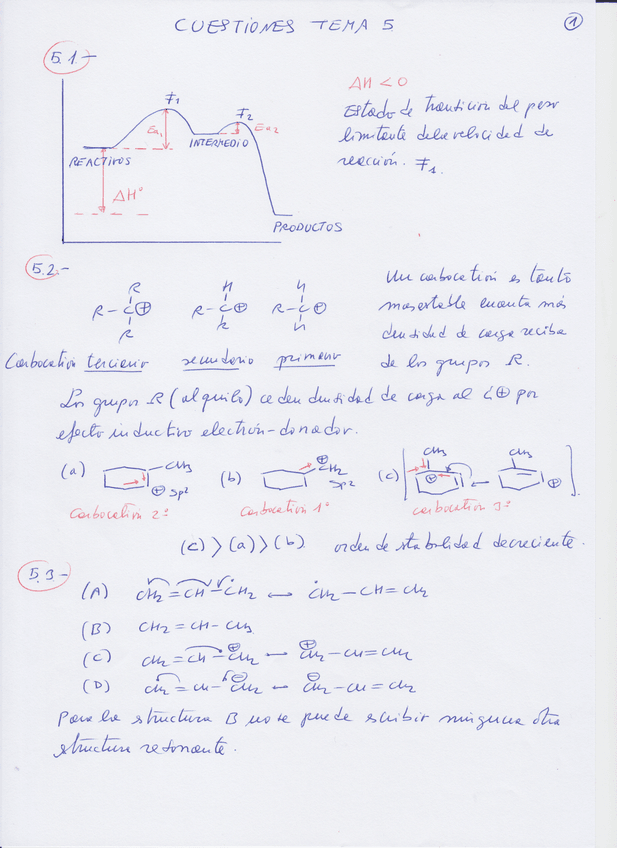 CUESTIONES TEMA 5
1
5.1-
ǂ1
ǂ2
Ea1
Ea2
INTERMEDIO
REACTIVOS
ΔH°
PRODUCTOS
ΔH < 0
Estado de transición del paso
limitante de la velocidad de
reacción. ǂ1.
5.2.-
R
R-C⊕
R
H
R-C⊕
R
H
R-C⊕
H
Carbocatión terciario secundario primario
Un carbocatión es tanto
mas estable cuanta más
densidad de carga reciba
de los grupos R.
Los grupos R (alquilo) ceden densidad de carga al C⊕ por
efecto inductivo electrón-donador.
(a) CH3 ⊕ sp2
Carbocatión 2º
(b) ⊕ CH2 sp2
Carbocatión 1º
(c) CH3 ⊕ ↔ CH3 ⊕
carbocatión 3º
(c) > (a) > (b) orden de stabilidad decreciente.
5.3-
(A) CH2=CH-ĊH2 ↔ ĊH2-CH=CH2
(B) CH2=CH-CH3
(C) CH2=CH-CH2⊕ ↔ ⊕CH2-CH=CH2
(D) CH2=CH-CH2⊖ ↔ ⊖CH2-CH=CH2
Para la structura B no se puede escribir ninguna otra
structura resonante.